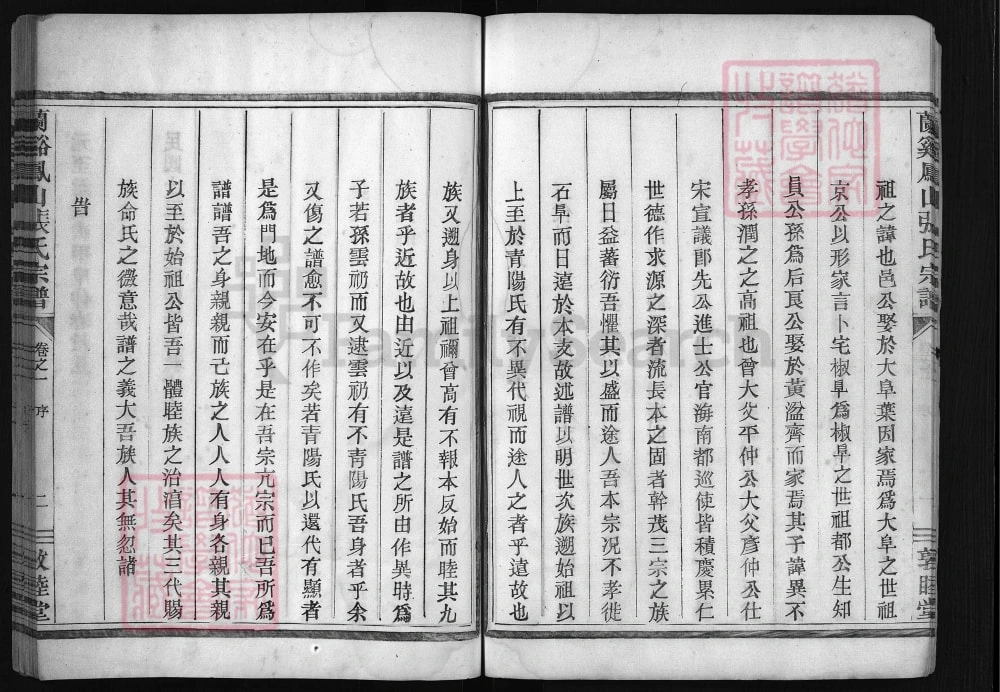 祖之諱也邑公娶於大阜葉因家焉爲大阜之世祖
京公以形家言卜宅椒阜爲椒阜之世祖都公生知
員公孫爲后良公娶於黄湓齊而家焉其子諱異不
孝孫潤之之高祖也曾大父平仲公大父彥仲公仕
宋宣議郎先公進士公官海南都巡使皆積慶累仁
世德作求源之深者流長本之固者幹茂三宗之族
屬日益蕃衍吾懼其以盛而途人吾本宗况不孝徙
石阜而日遠於本支故述譜以明世次族遡始祖以
上至於青陽氏有不異代視而途人之者乎遠故也
族又遡身以上祖禰曾高有不報本反始而睦其九
族者乎近故也由近以及遠是譜之所由作異時爲
子若孫雲礽而又逮雲礽有不青陽氏吾身者乎余
又傷之譜愈不可不作矣若青陽氏以還代有顯者
是爲門地而今安在乎是在吾宗亢宗而已吾所爲
譜譜吾之身親親而己族之人人人有身各親其親
以至於始祖公皆吾一體睦族之治湻矣其三代賜
族命氏之微意哉譜之義大吾族人其無忽諸
旹
蘭谿鳳山張氏宗譜
卷之一
序
二
敦睦堂
蘭谿鳳山張氏宗譜
敦睦堂
FamilySearch